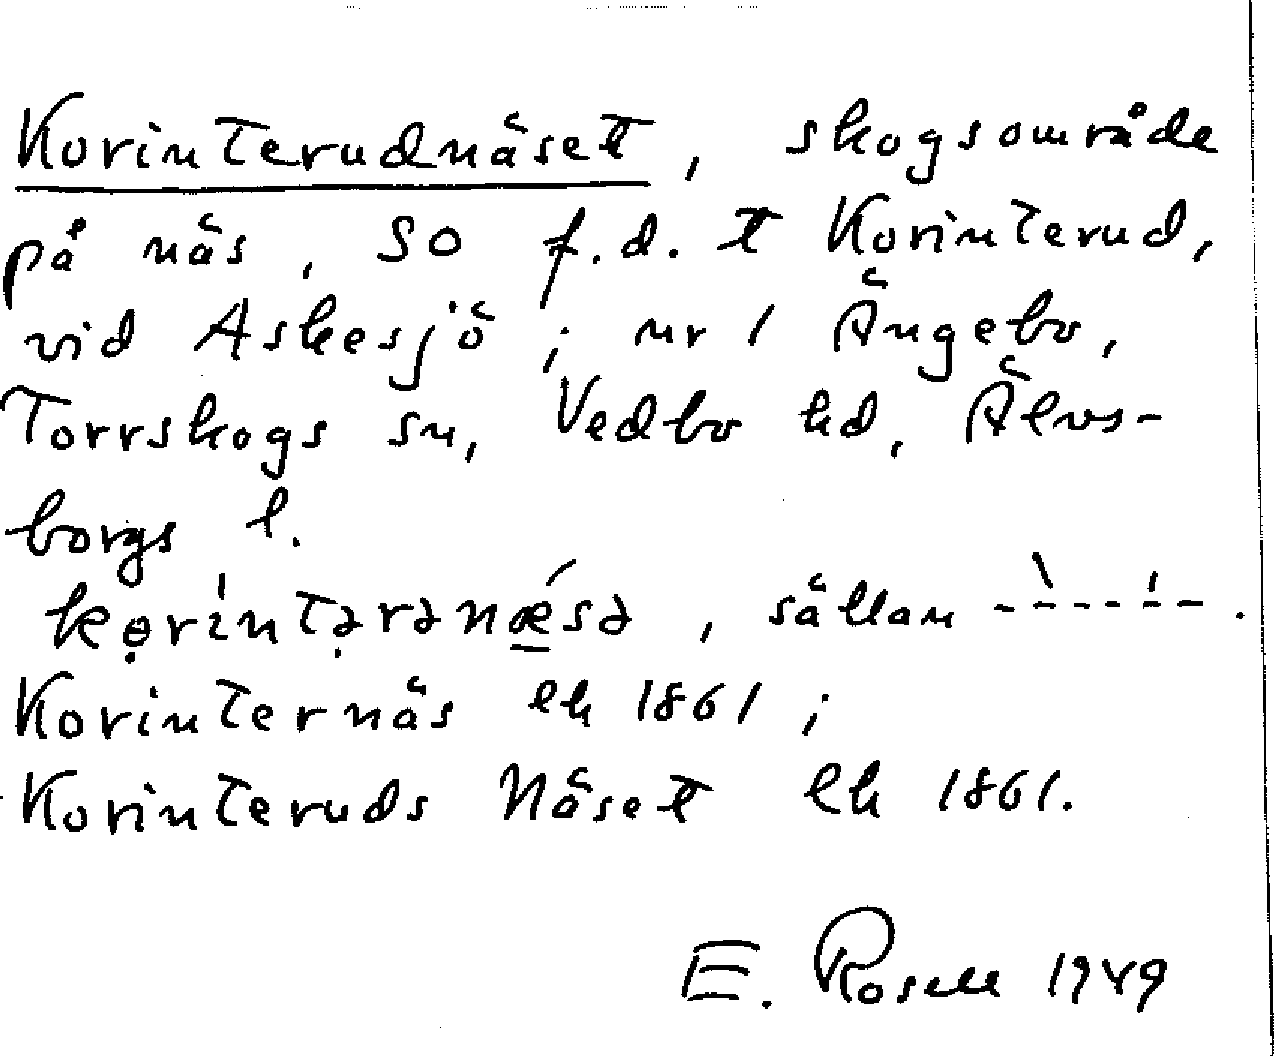 Korinterudnäset, skogsområde
på näs, SO f.d. t Korinterud,
vid Askesjö; nr 1 Ängebo,
Torrskogs sn, Vedbo hd, Älvs-
borgs l.
kọrintəranæsə, sällan - - - - - - .
Korinternäs ek 1861;
Korinteruds Näset ek 1861.
E. Rosell 1949